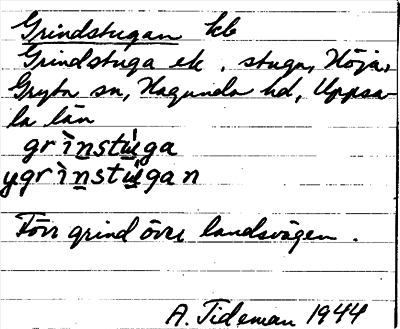 Grindstugan kb
Grindstuga ek, stuga, Höja,
Gryta sn, Hagunda hd, Uppsa-
la län
grìnstu̇ga
ygrìnstu̇gan
Förr grind över landsvägen.
A. Tideman 1944